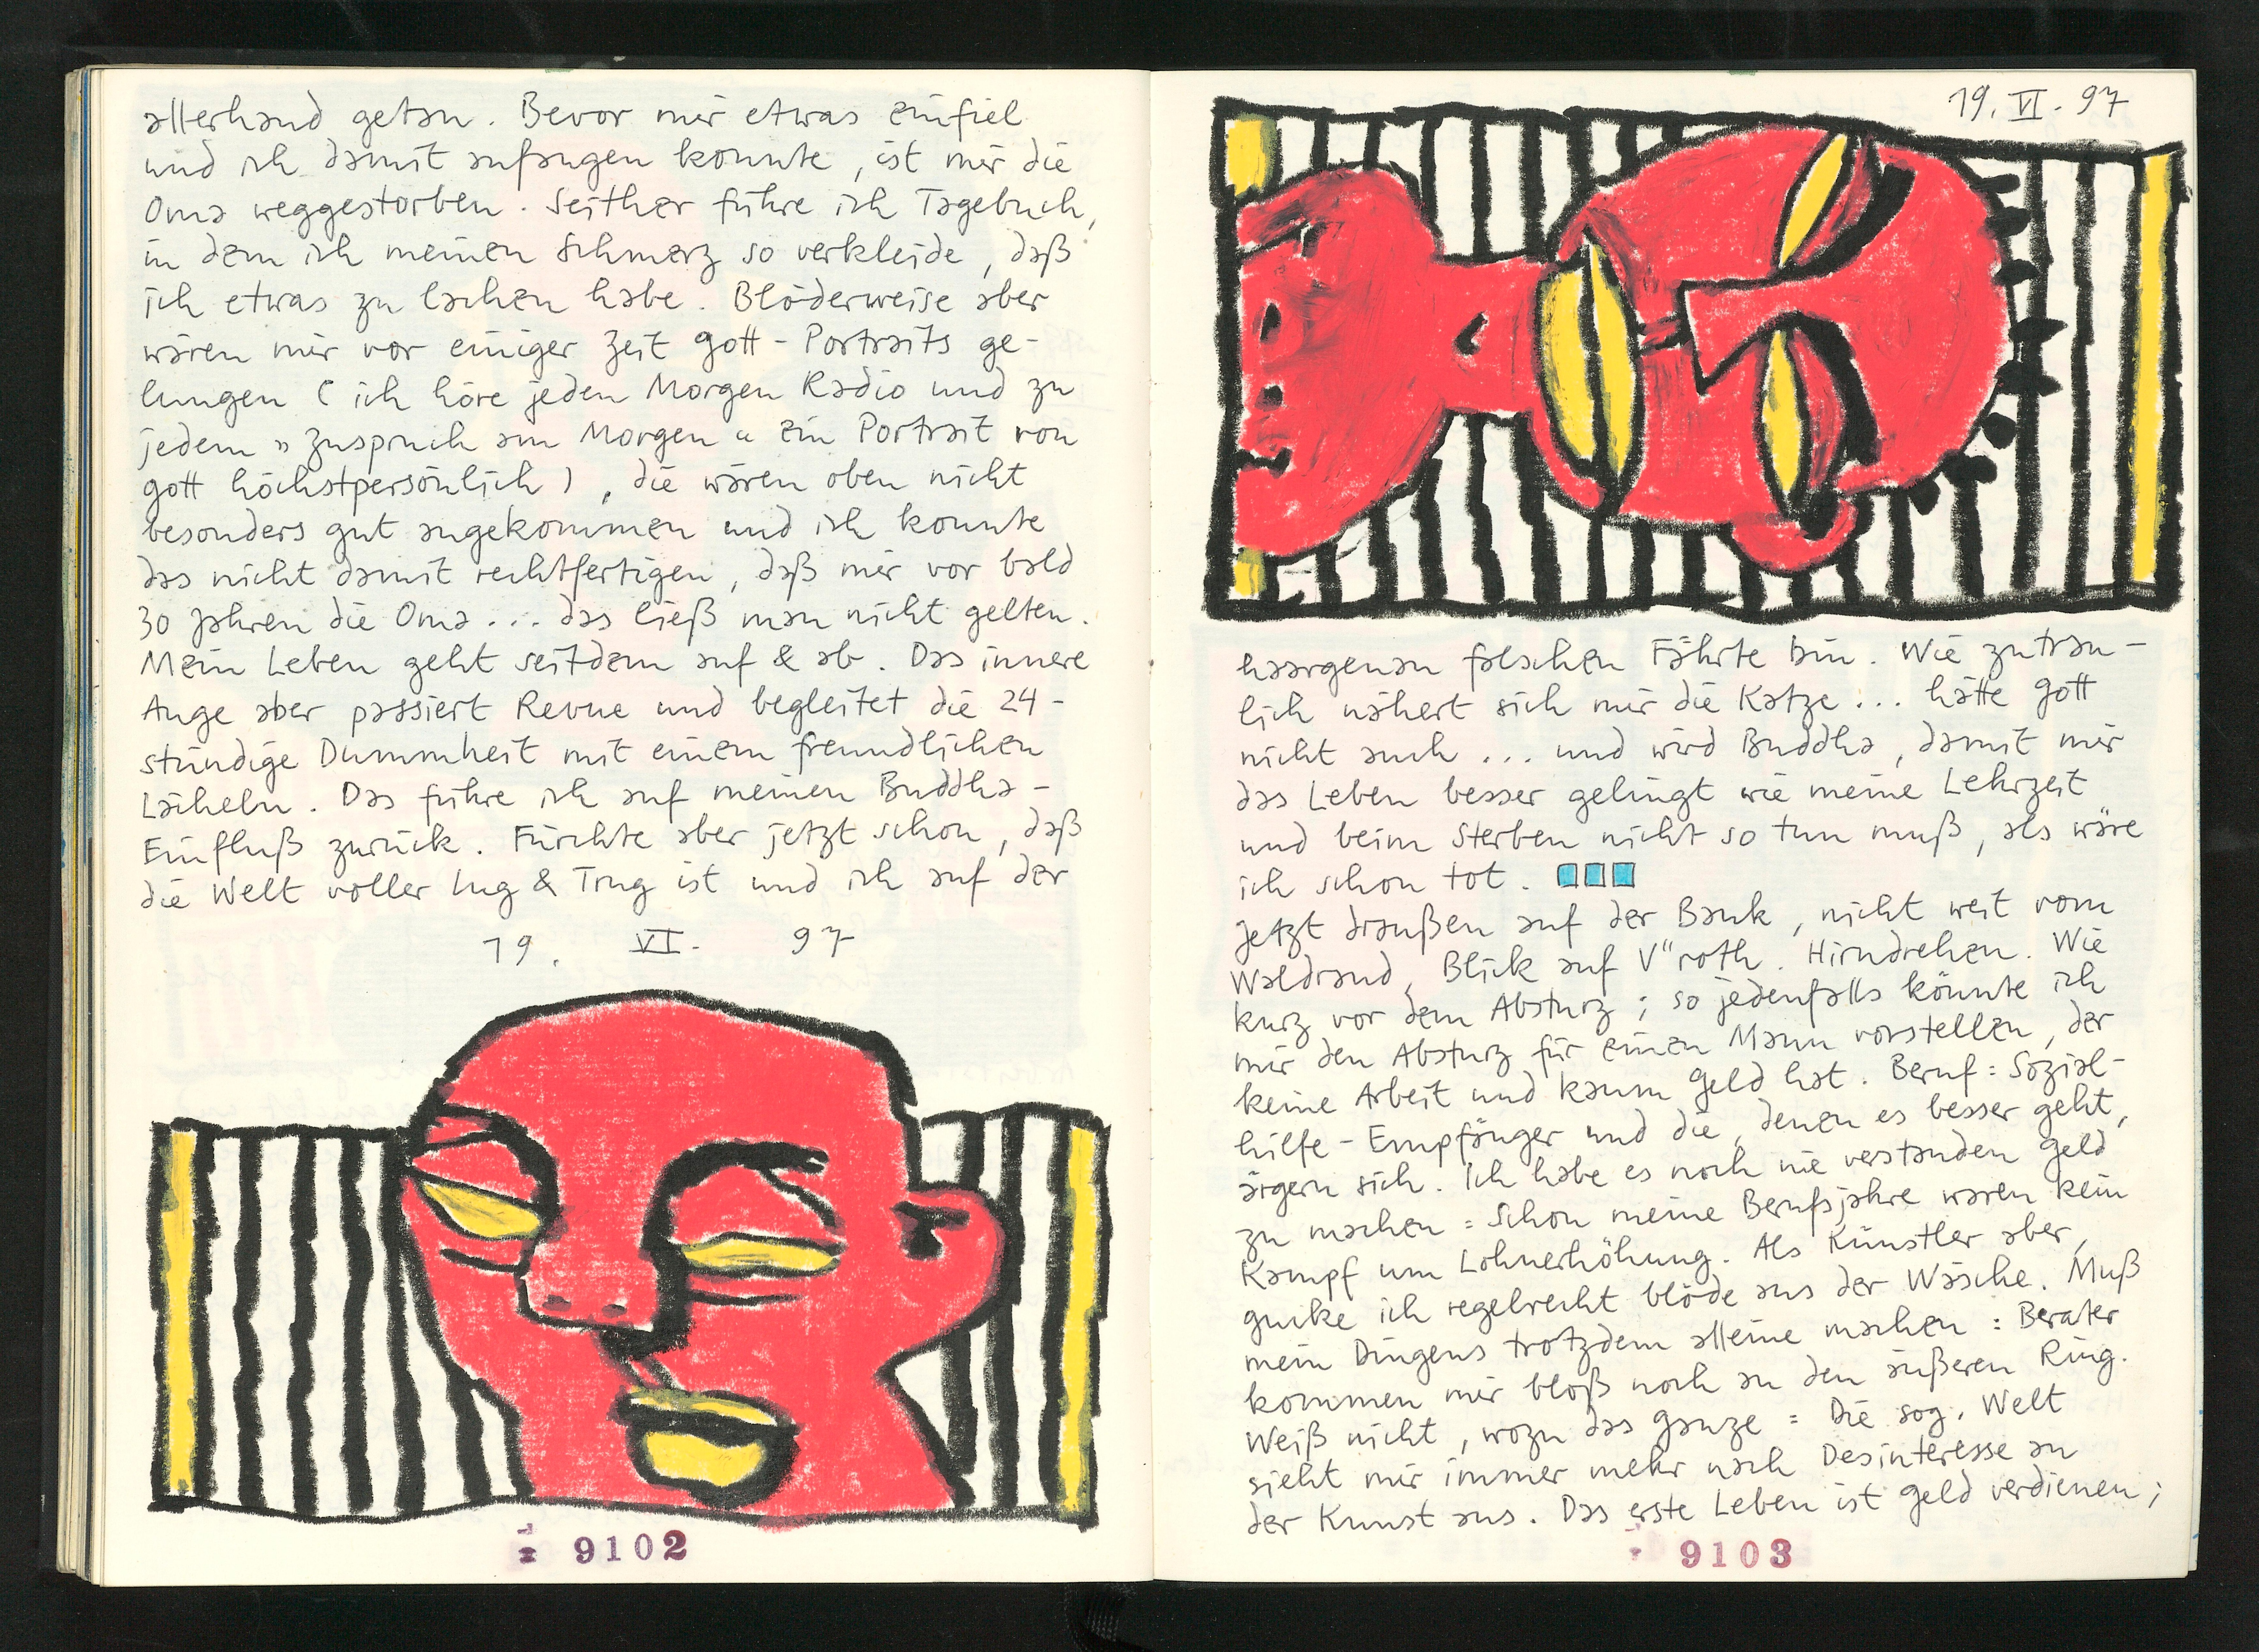 allerhand getan. Bevor mir etwas einfiel
und ich damit anfangen konnte, ist mir die
Oma weggestorben. Seither führe ich Tagebuch,
in dem ich meinen Schmerz so verkleide, daß
ich etwas zu lachen habe. Blöderweise aber
wären mir vor einiger Zeit Gott-Portraits ge-
lungen (ich höre jeden Morgen Radio und zu
jedem »Zuspruch am Morgen« ein Portrait von
Gott höchstpersönlich), die wären oben nicht
besonders gut angekommen und ich konnte
das nicht damit rechtfertigen, daß mir vor bald
30 Jahren die Oma... das ließ man nicht gelten.
Mein Leben geht seitdem auf & ab. Das innere
Auge aber passiert Revue und begleitet die 24-
stündige Dummheit mit einem freundlichen
Lächeln. Das führe ich auf meinen Buddha-
Einfluß zurück. Fürchte aber jetzt schon, daß
die Welt voller Lug & Trug ist und ich auf der
19. VI. 97
9102
19. VI. 97
haargenau falschen Fährte bin. Wie zutrau-
lich nähert sich mir die Katze... hätte Gott
nicht auch... und wird Buddha, damit mir
das Leben besser gelingt wie meine Lehrzeit
und beim Sterben nicht so tun muß, als wäre
ich schon tot.
Jetzt draußen auf der Bank, nicht weit vom
Waldrand, Blick auf V"roth. Hirndrehen. Wie
kurz vor dem Absturz; so jedenfalls könnte ich
mir den Absturz für einen Mann vorstellen, der
keine Arbeit und kaum Geld hat. Beruf: Sozial-
hilfe-Empfänger und die, denen es besser geht,
ärgern sich. Ich habe es noch nie verstanden Geld
zu machen: Schon meine Berufsjahre waren kein
Kampf um Lohnerhöhung. Als Künstler aber,
gucke ich regelrecht blöde aus der Wäsche. Muß
mein Dingens trotzdem alleine machen: Berater
kommen mir bloß noch an den äußeren Ring.
Weiß nicht, wozu das ganze: Die sog. Welt
sieht mir immer mehr nach Desinteresse an
der Kunst aus. Das erste Leben ist Geld verdienen;
9103